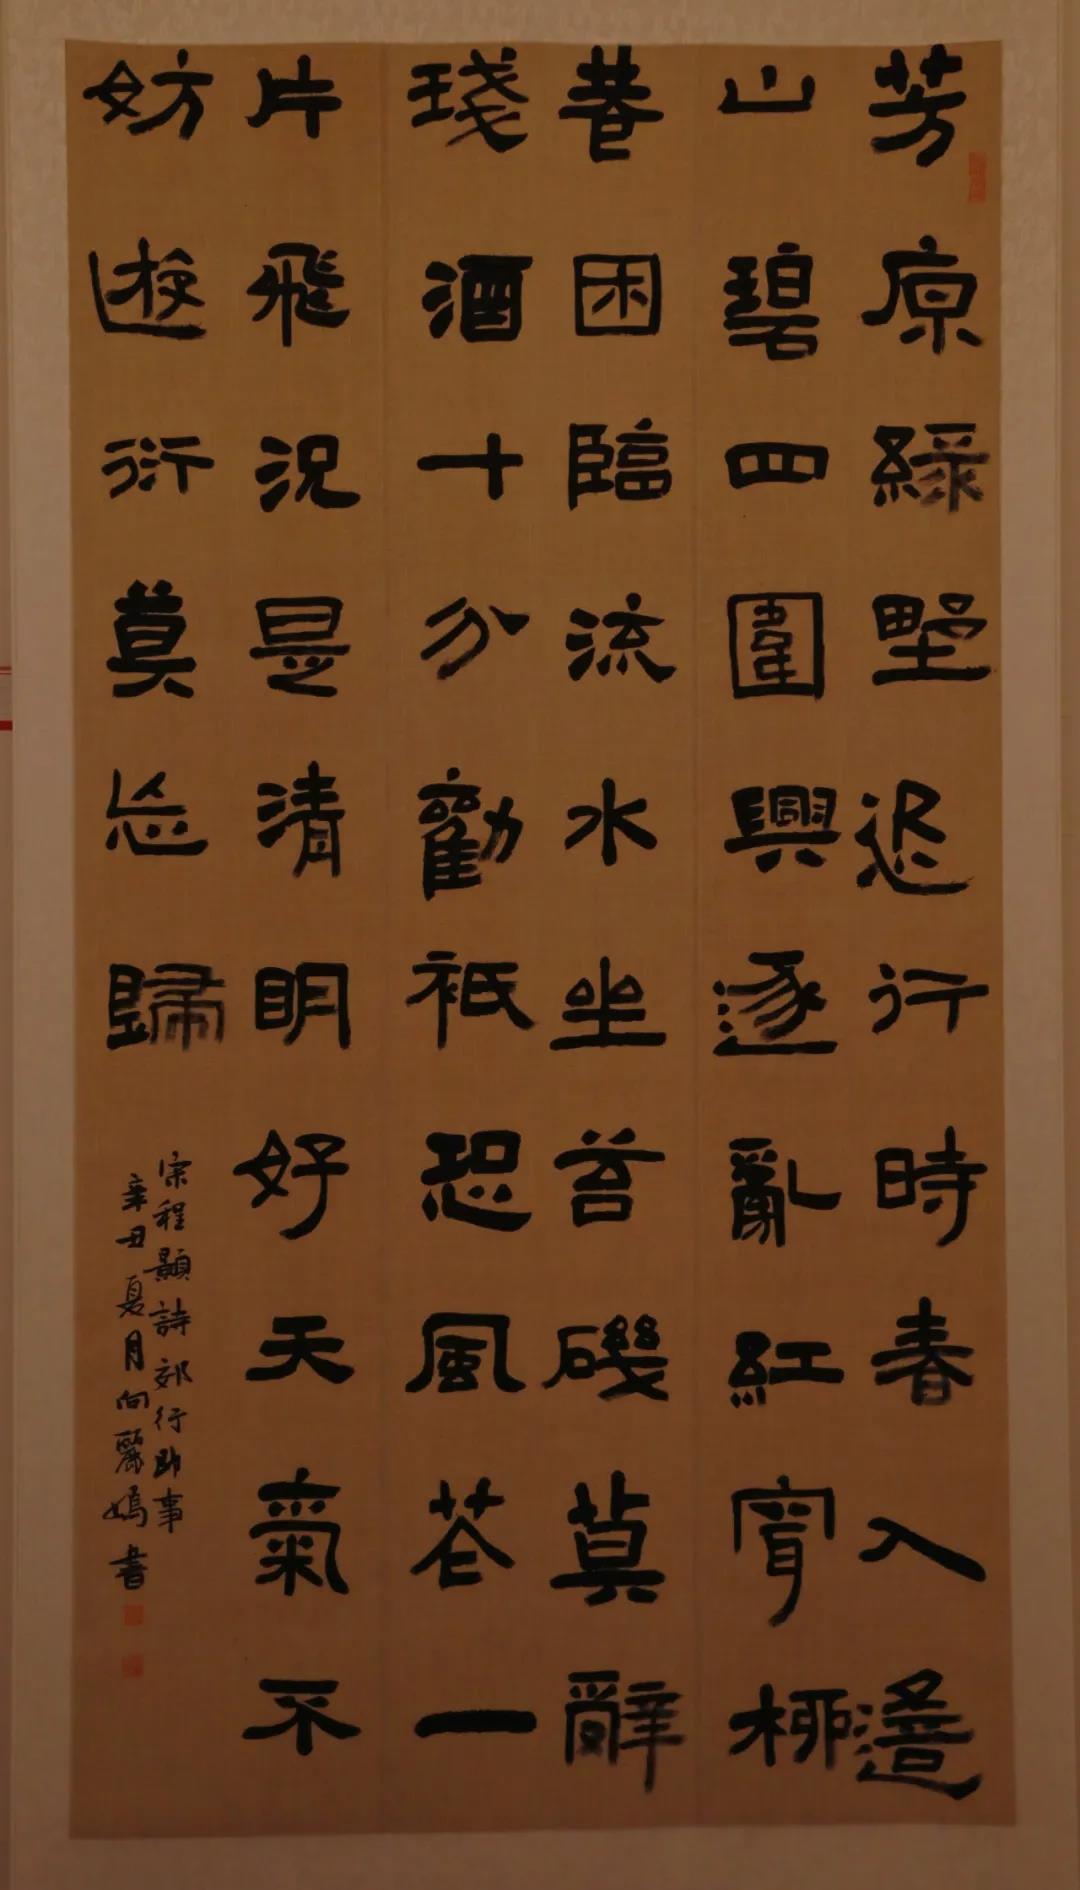 芳原綠野恣行時春入遙
山碧四圍興逐亂紅穿柳
巷困臨流水坐苔磯莫辭
琖酒十分勸衹恐風花一
片飛況是清明好天氣不
妨遊衍莫忘歸
宋程顥詩郊行即事
辛丑夏月向麗嫣書